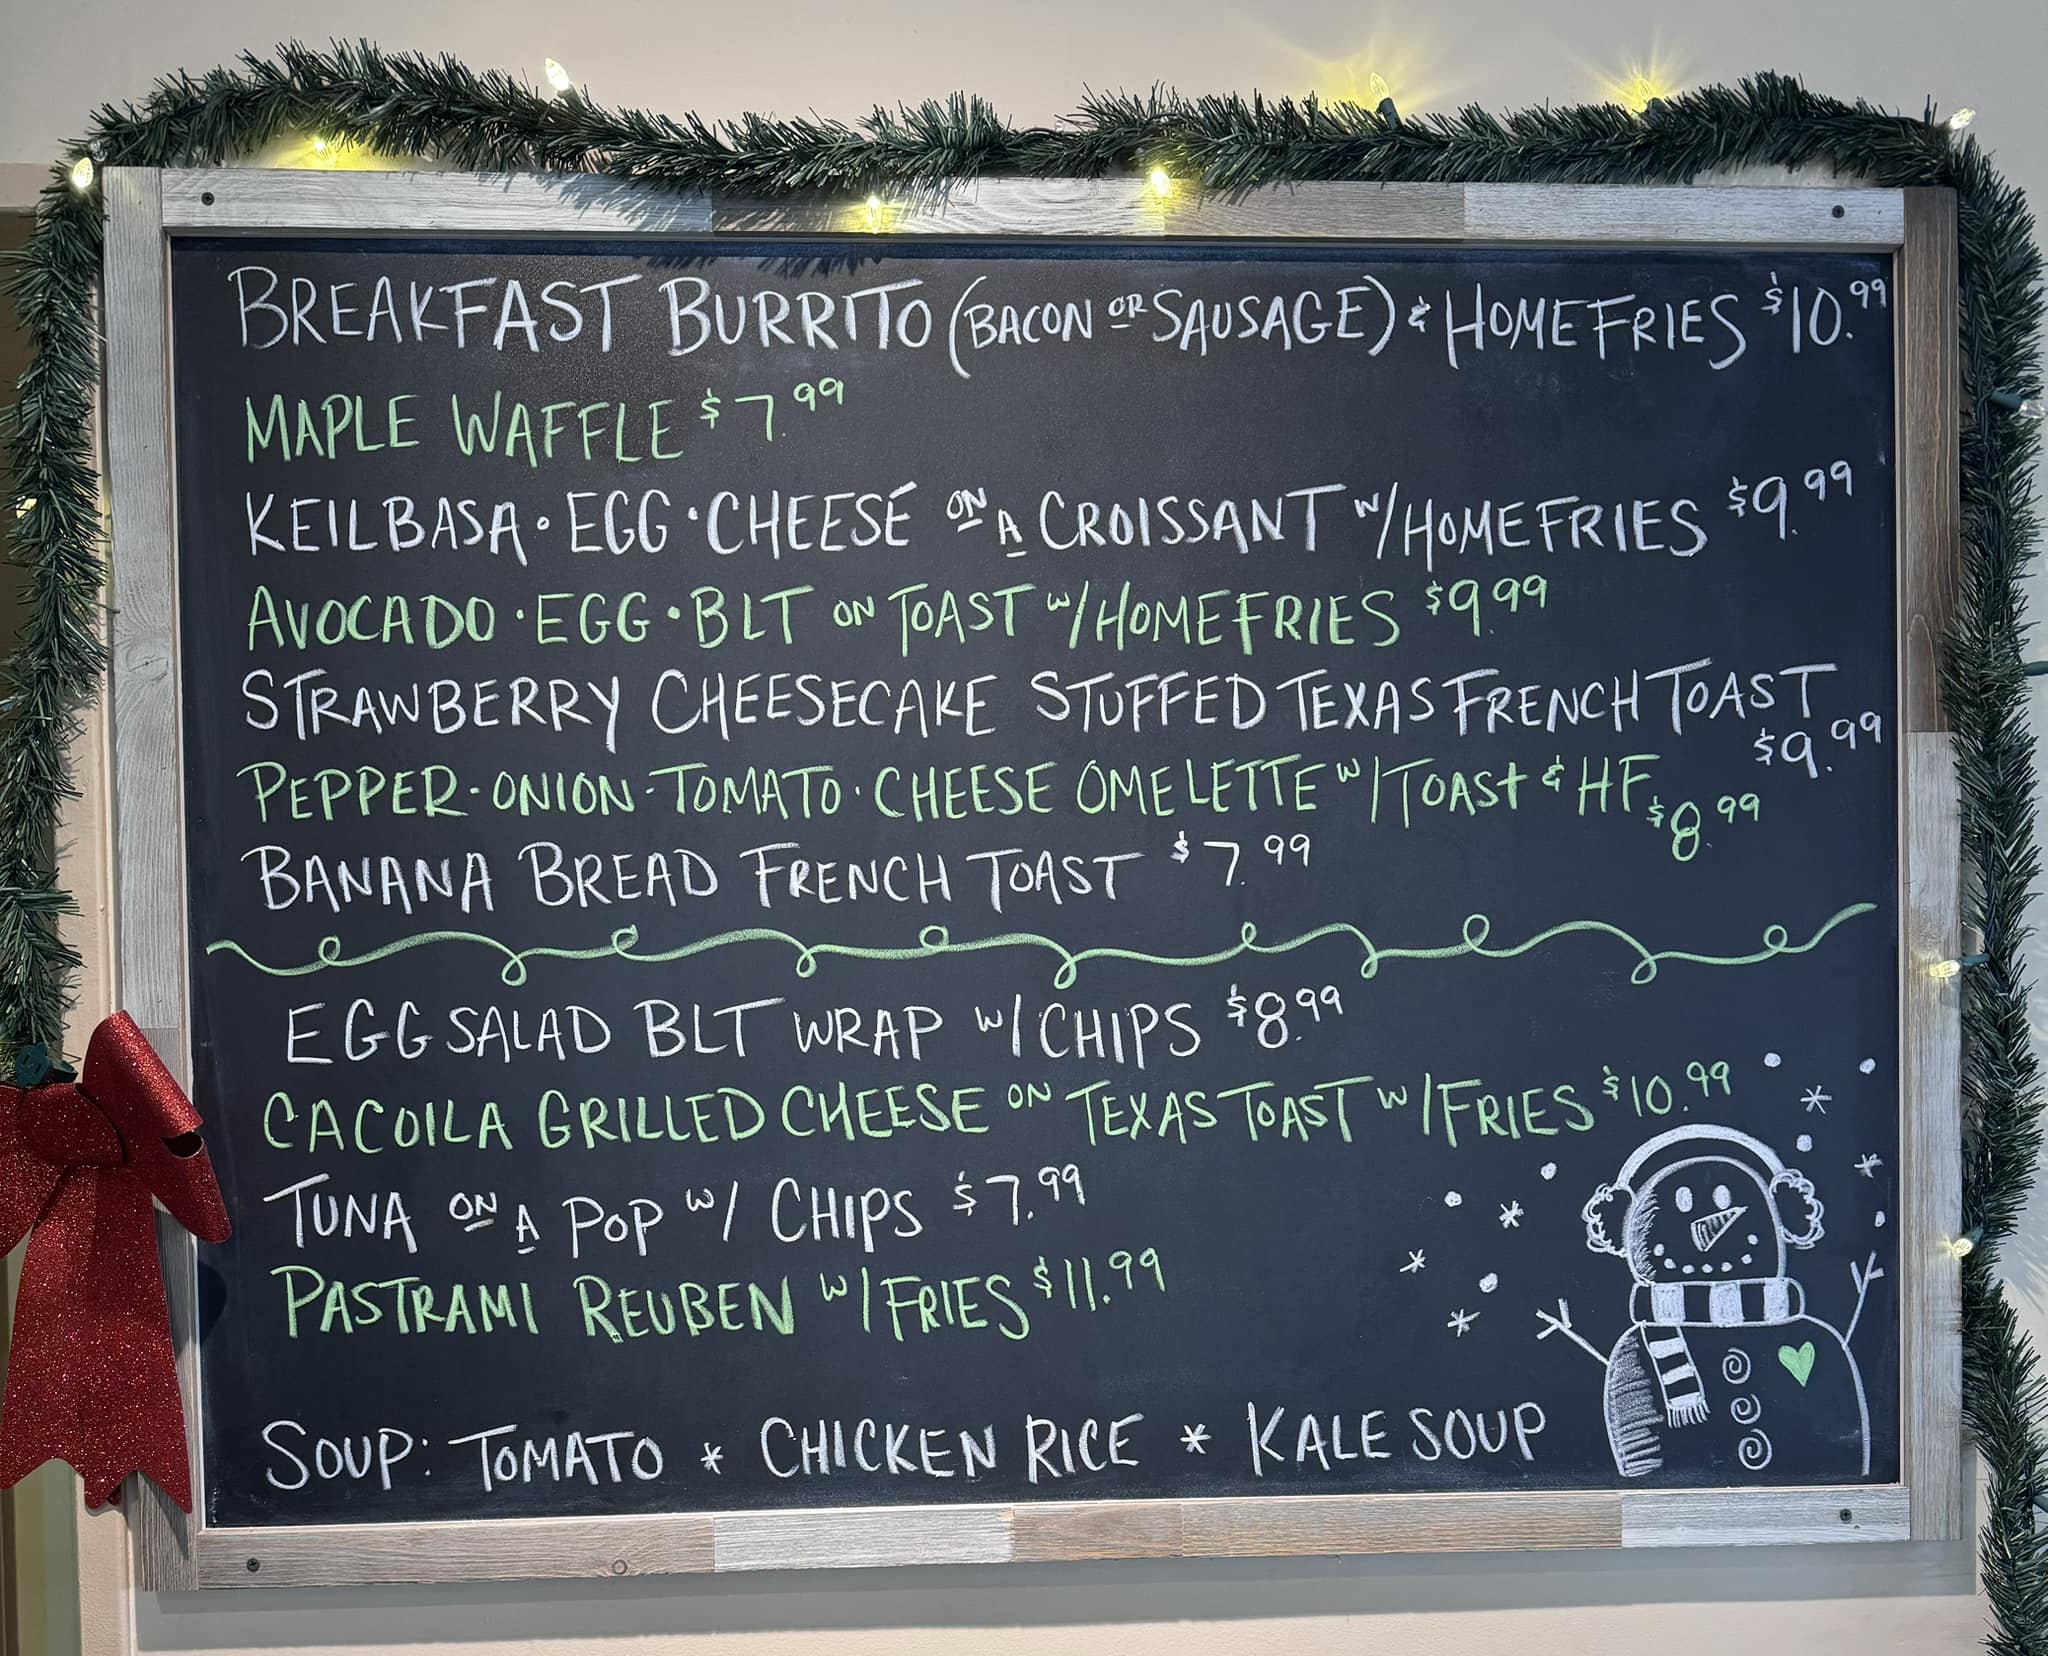 BREAKFAST BURRITO (BACON OR SAUSAGE) & HOMEFRIES $10.99
MAPLE WAFFLE $7.99
KEILBASA • EGG • CHEESE ON A CROISSANT W/HOMEFRIES $9.99
AVOCADO • EGG • BLT ON TOAST W/HOMEFRIES $9.99
STRAWBERRY CHEESECAKE STUFFED TEXAS FRENCH TOAST $9.99
PEPPER • ONION • TOMATO • CHEESE OMELETTE W/TOAST & HF $8.99
BANANA BREAD FRENCH TOAST $7.99
EGG SALAD BLT WRAP W/CHIPS $8.99
CACOILA GRILLED CHEESE ON TEXAS TOAST W/FRIES $10.99
TUNA ON A POP W/ CHIPS $7.99
PASTRAMI REUBEN W/FRIES $11.99
SOUP: TOMATO * CHICKEN RICE * KALE SOUP